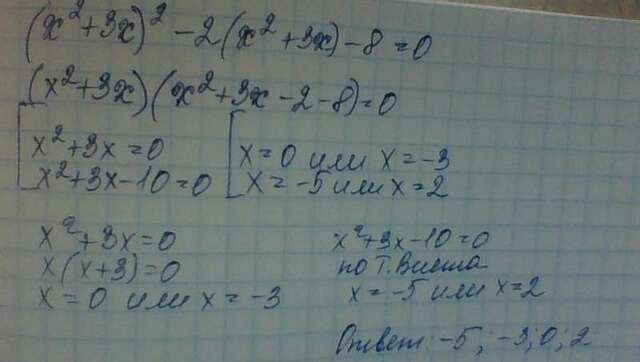 (x²+3x)²-2(x²+3x)-8=0
(x²+3x)(x²+3x-2-8)=0
x²+3x=0
x²+3x-10=0
x=0 или x=-3
x=-5 или x=2
x²+3x=0
x(x+3)=0
x=0 или x=-3
x²+3x-10=0
по т. Виета
x=-5 или x=2
Ответ: -5; -3; 0; 2